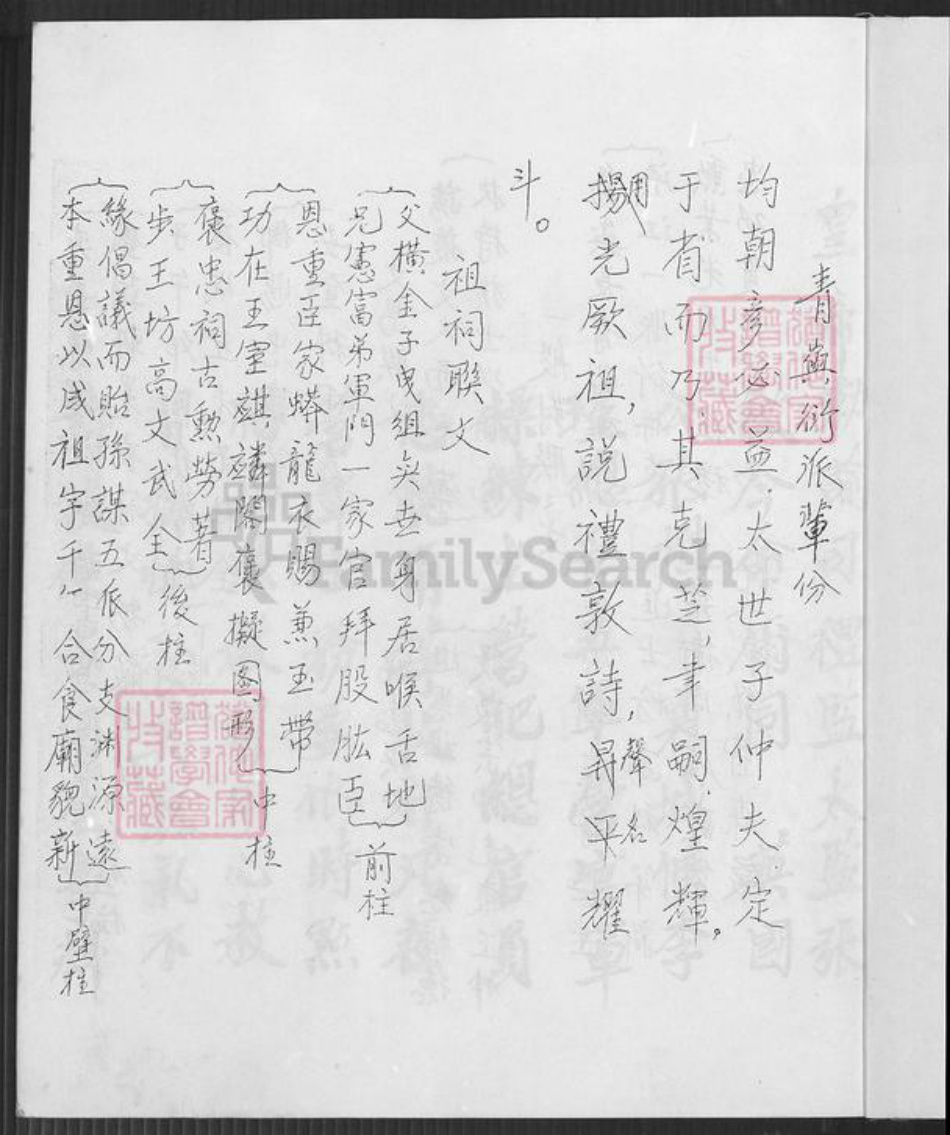 青輿衍派輩份
均朝彥必孟．太世子仲夫．定
于省而乃．其克芝，聿嗣．煌輝。
揚光厥祖，說禮敦詩，昇平耀
用
聲名
斗。
祖祠聯文
父橫金子曳組奕世身居喉舌地
兄憲富弟軍門一家官拜股肱臣
前柱
恩重臣家蟒龍衣賜兼玉帶
功在王室麒麟閣襄擬圖形
中柱
褒忠祠古勲勞著
步王坊高文武全
後柱
緣倡議而貽孫謀五派分支渊源遠
本重恩以咸祖字千 合食廟貌新
中壁柱
FamilySearch